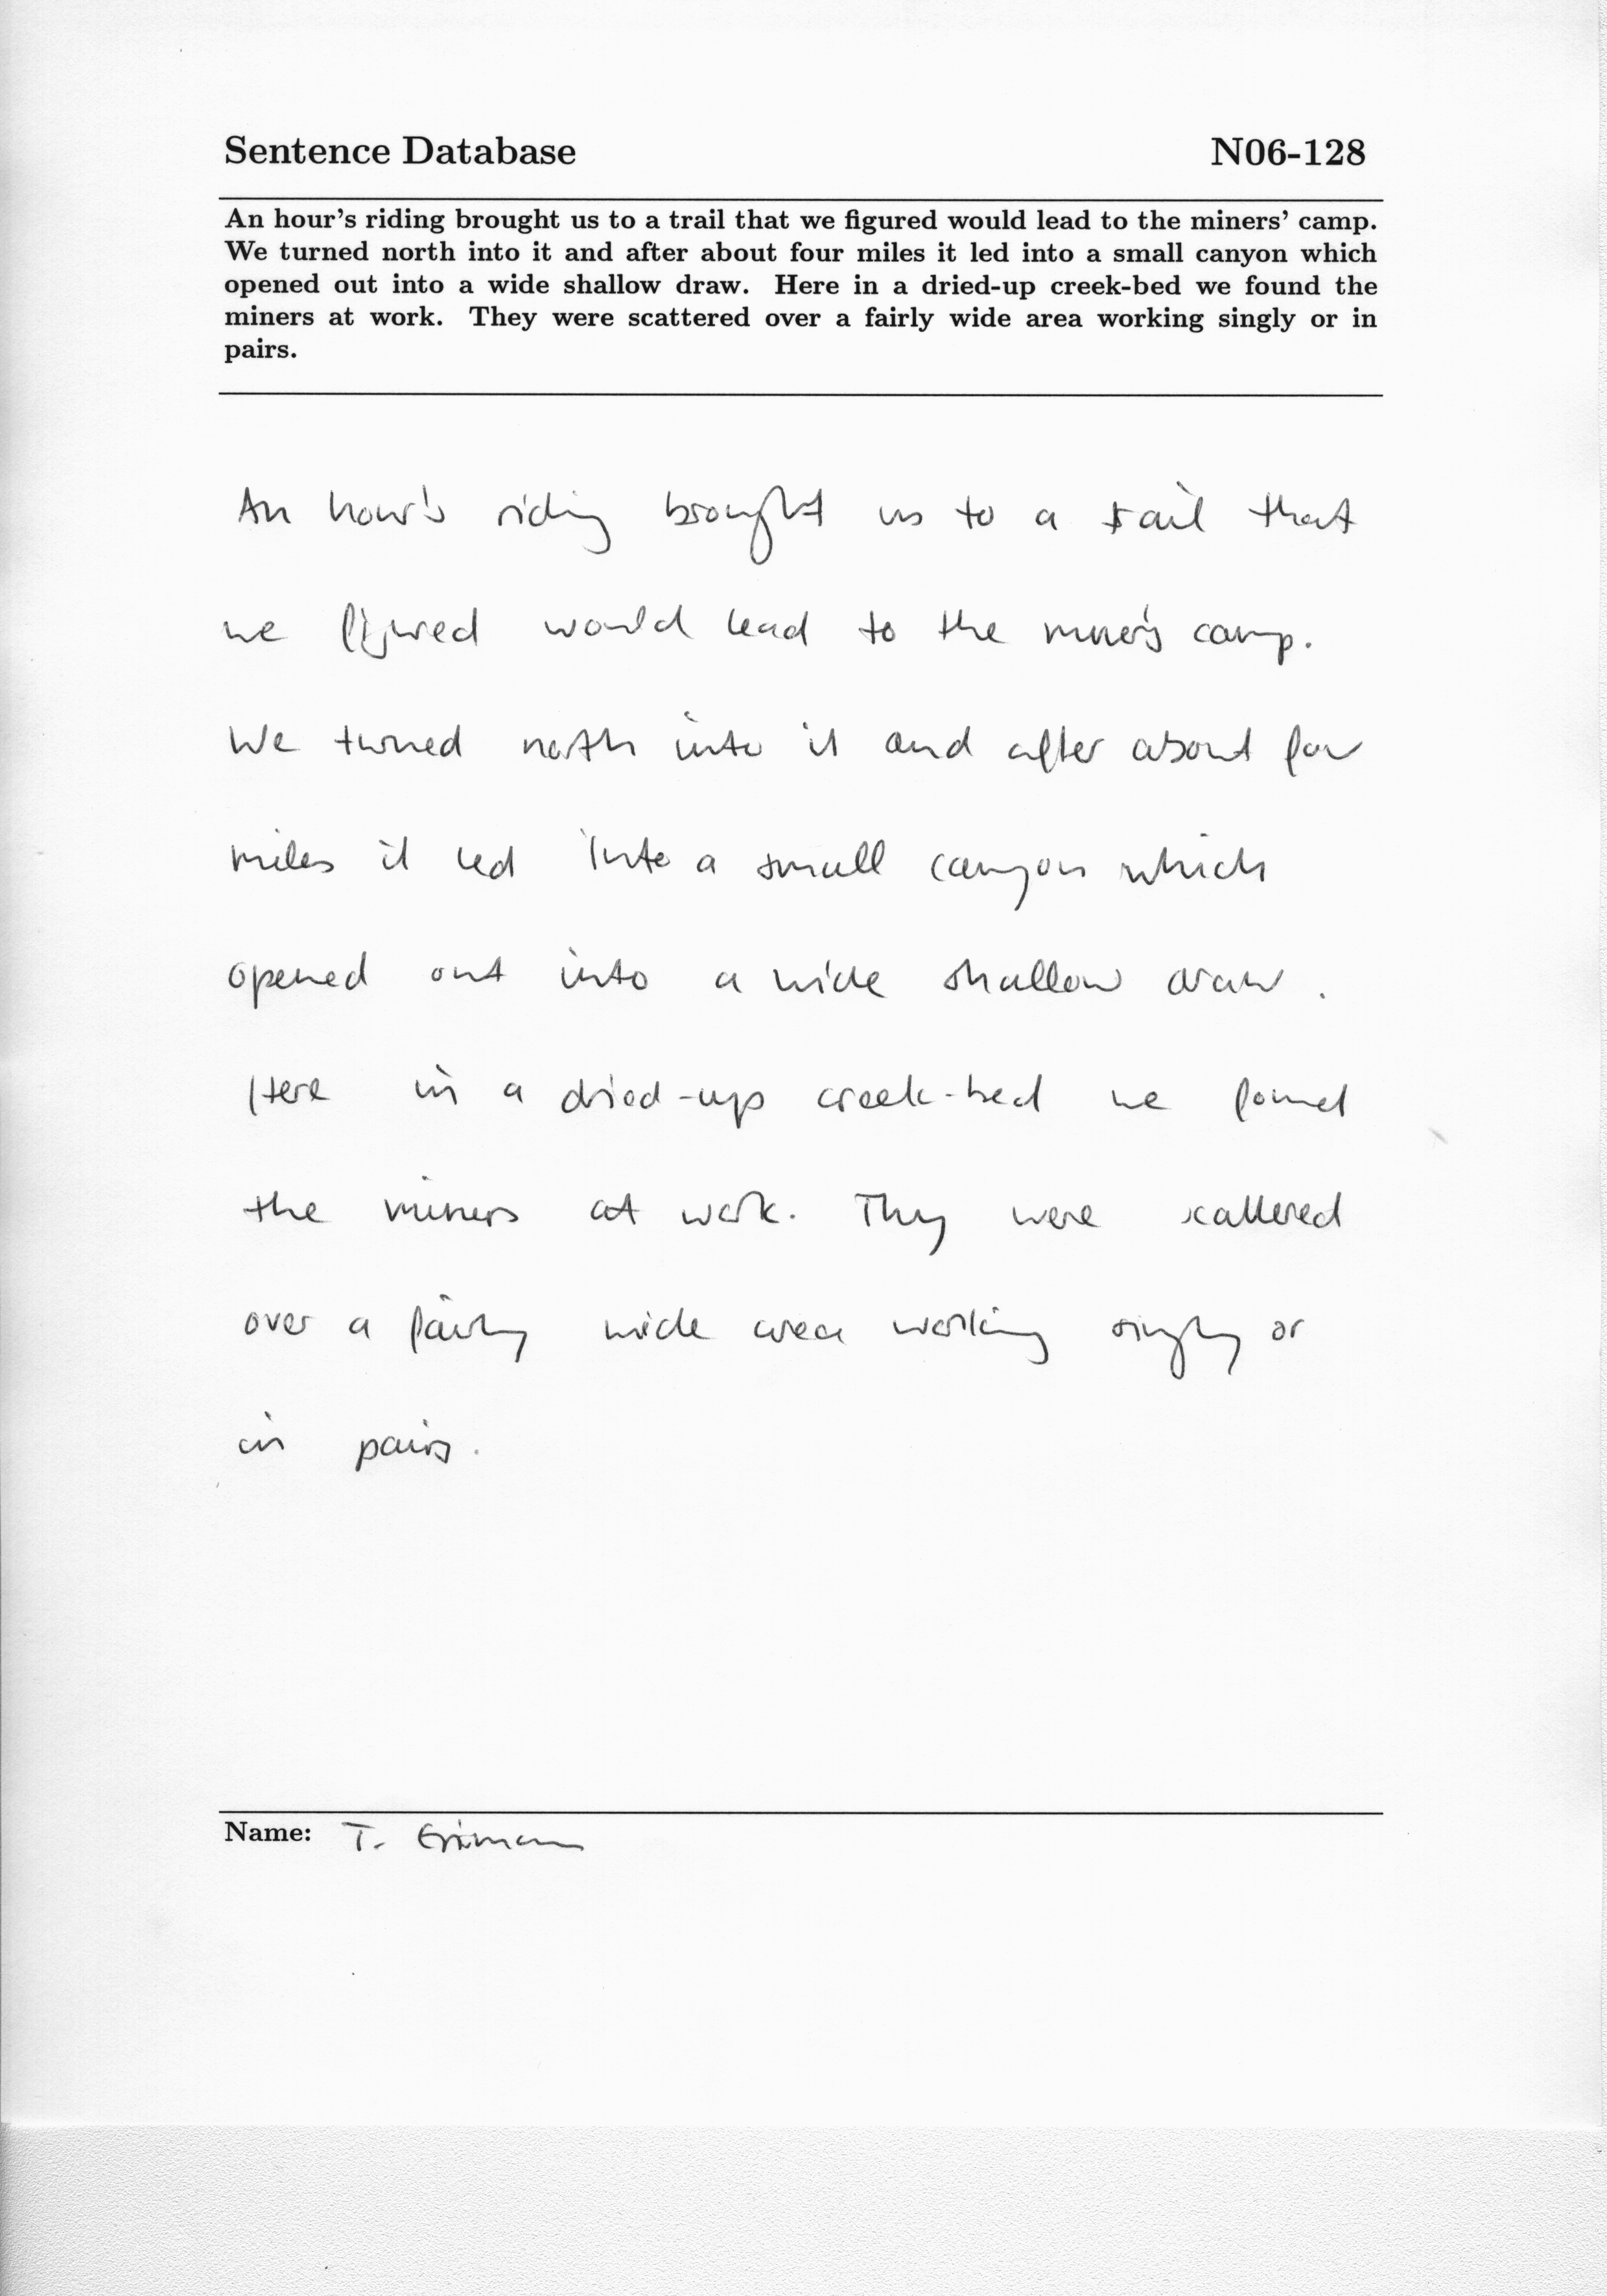 Sentence Database N06-128
An hour's riding brought us to a trail that we figured would lead to the miners' camp.
We turned north into it and after about four miles it led into a small canyon which
opened out into a wide shallow draw. Here in a dried-up creek-bed we found the
miners at work. They were scattered over a fairly wide area working singly or in
pairs.
An hour's riding brought us to a trail that
we figured would lead to the miner's camp.
We turned north into it and after about four
miles it led into a small canyon which
opened out into a wide shallow draw.
Here in a dried-up creek-bed we found
the miners at work. They were scattered
over a fairly wide area working singly or
in pairs.
Name: T.